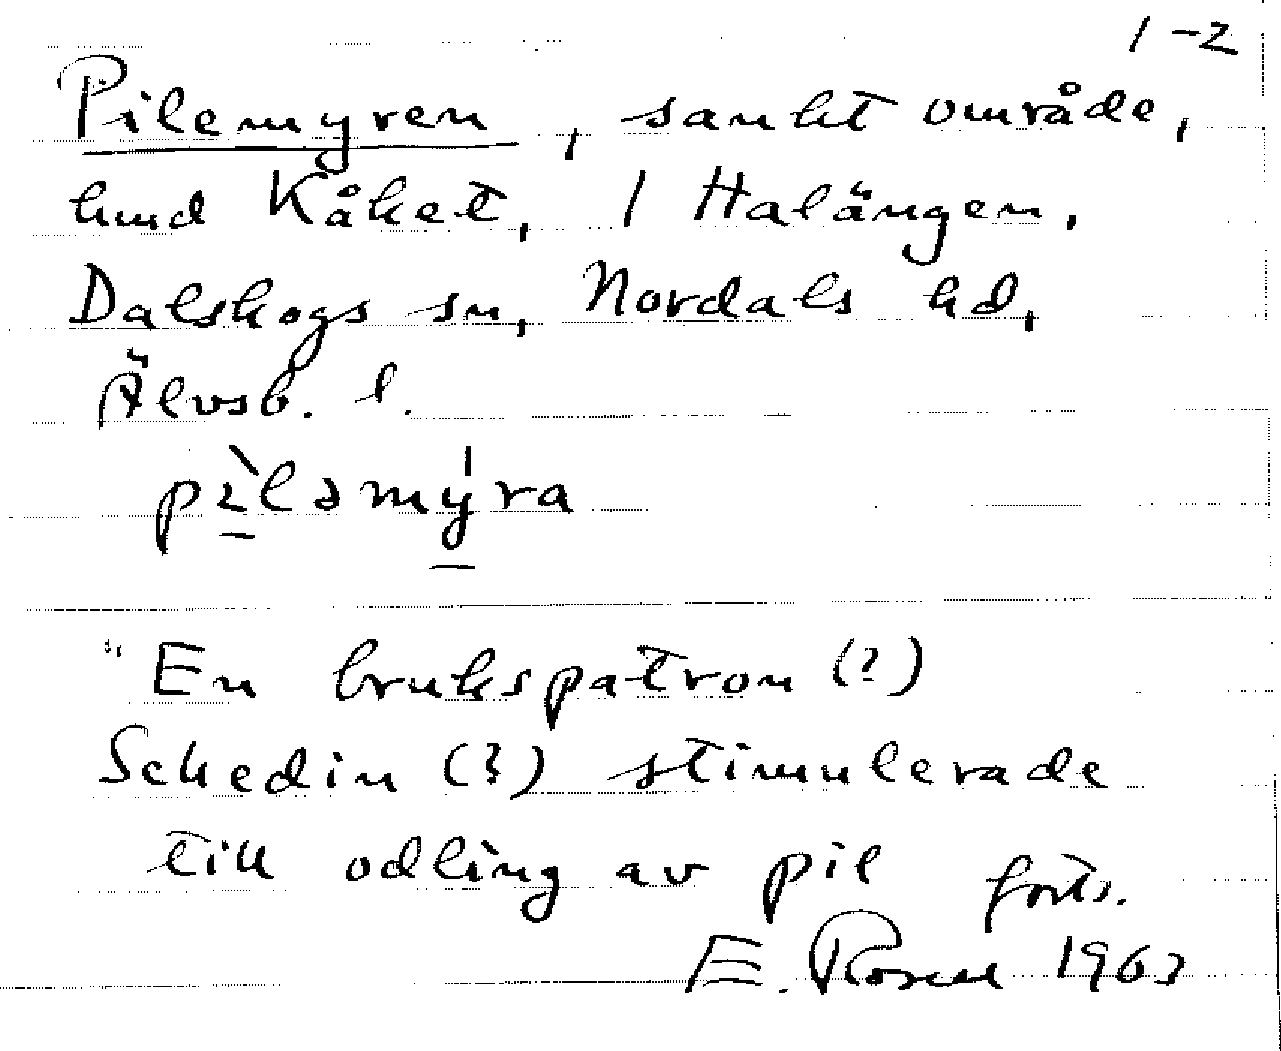 1-2
Pilemyren, sankt område,
hmd Kåket, 1 Halängen,
Dalskogs sn, Nordals hd,
Älvsb. l.
pìləmy̍ra
"En brukspatron (?)
Schedin (?) stimulerade
till odling av pil forts.
E. Rosell 1963